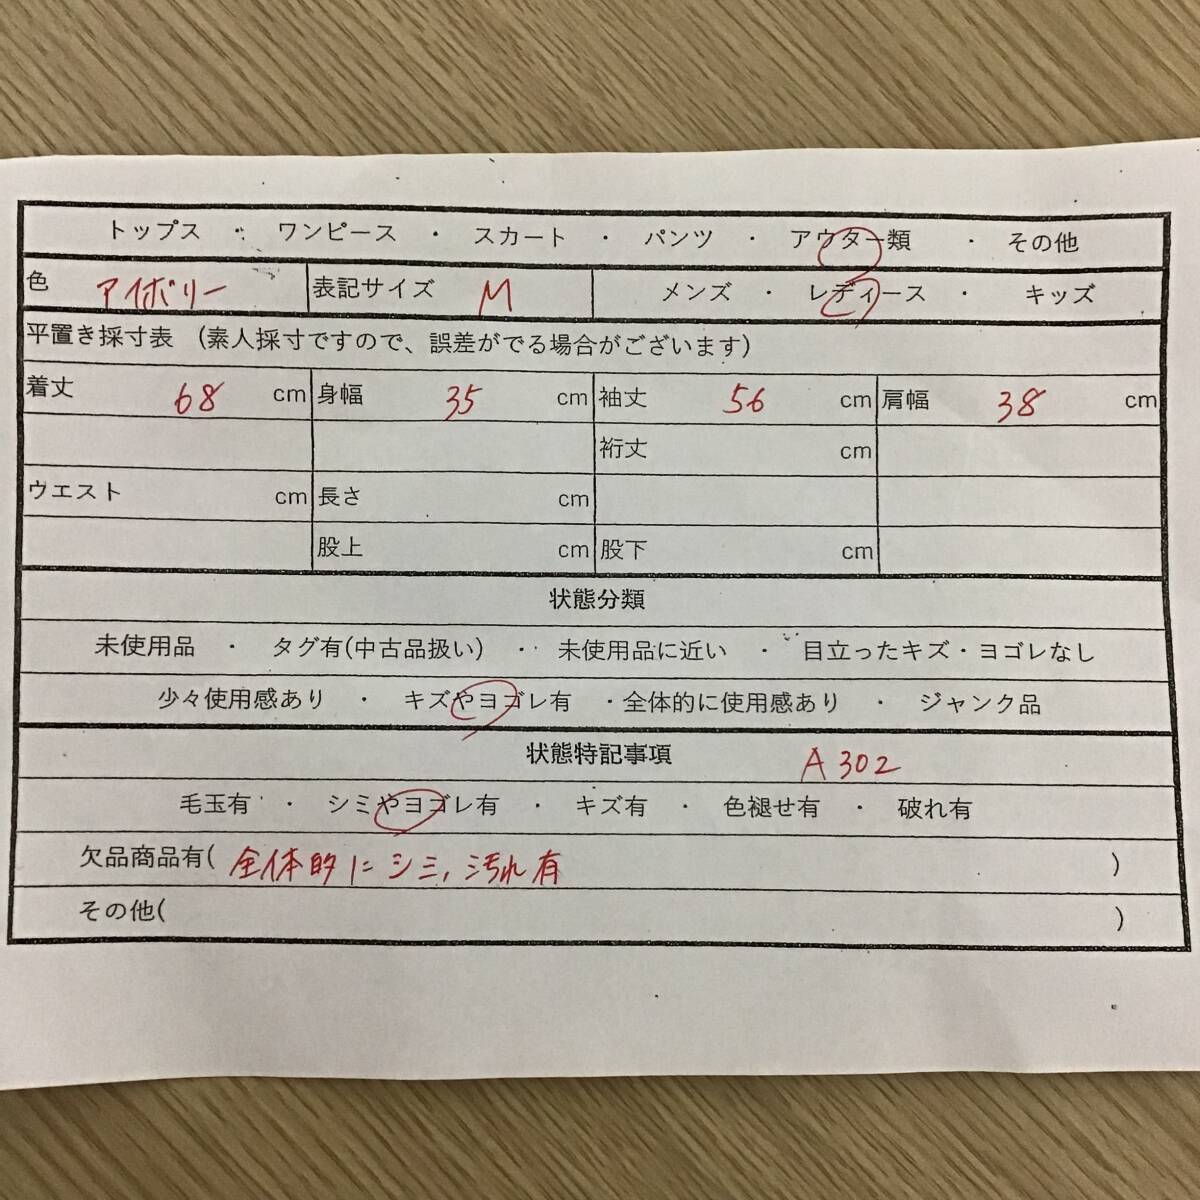 トップス ・ ワンピース ・ スカート ・ パンツ ・ アウター類 ・ その他
色 アイボリー 表記サイズ M メンズ ・ レディース ・ キッズ
平置き採寸表 (素人採寸ですので、誤差がでる場合がございます)
着丈 68 cm 身幅 35 cm 袖丈 56 cm 肩幅 38 cm
裄丈 cm
ウエスト cm 長さ cm
股上 cm 股下 cm
状態分類
未使用品 ・ タグ有(中古品扱い) ・ 未使用品に近い ・ 目立ったキズ・ヨゴレなし
少々使用感あり ・ キズやヨゴレ有 ・全体的に使用感あり ・ ジャンク品
状態特記事項 A302
毛玉有 ・ シミやヨゴレ有 ・ キズ有 ・ 色褪せ有 ・ 破れ有
欠品商品有( 全体的にシミ,汚れ有 )
その他( )